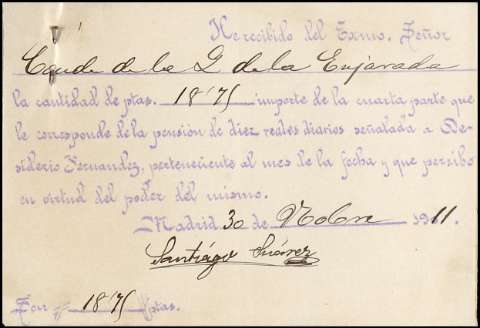 He recibido del Exmo. Señor
Conde de la Q de la Enjarada
la cantidad de ptas. 18'75 importe de la cuarta parte que
le corresponde de la pensión de diez reales diarios señalada a De-
siderio Fernandez, perteneciente al mes de la fecha y que percibo
en virtud del poder del mismo.
Madrid 30 de Nobre 1911.
Santiago Suárez
Son 18'75 ptas.